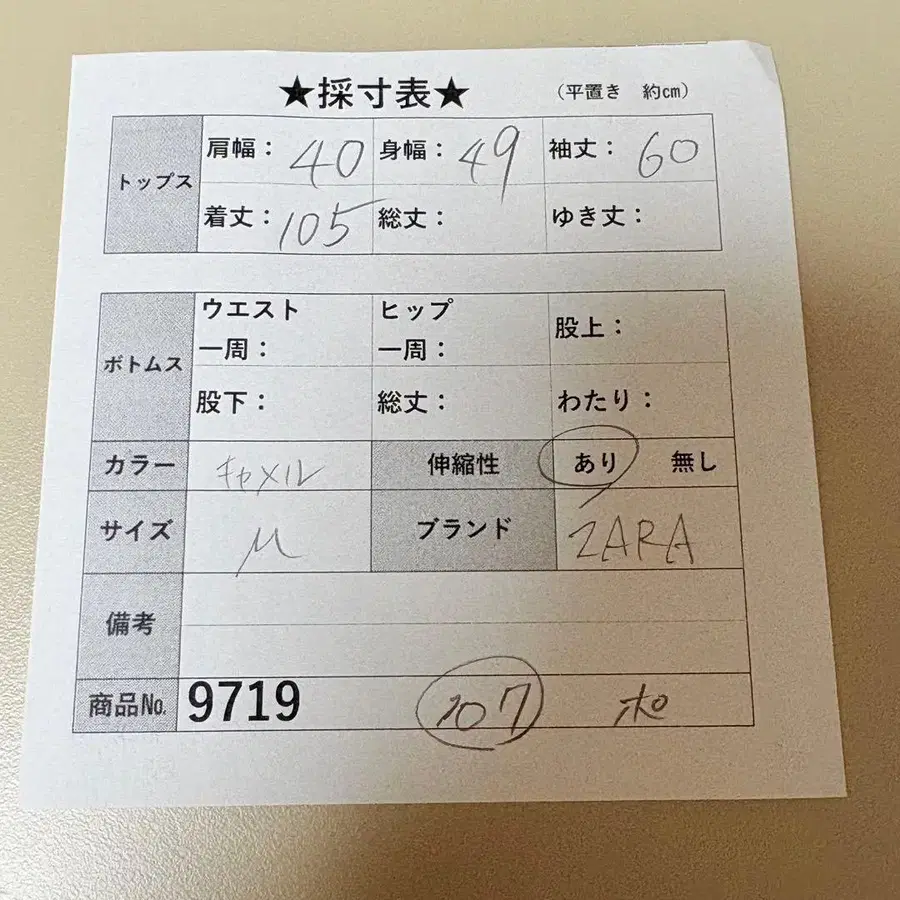 ★採寸表★ （平置き 約cm）
トップス 肩幅： 40 身幅： 49 袖丈： 60
着丈： 105 総丈： ゆき丈：
ボトムス ウエスト 一周： ヒップ 一周： 股上：
股下： 総丈： わたり：
カラー キャメル 伸縮性 あり 無し
サイズ M ブランド ZARA
備考
商品No. 9719 107 ポ